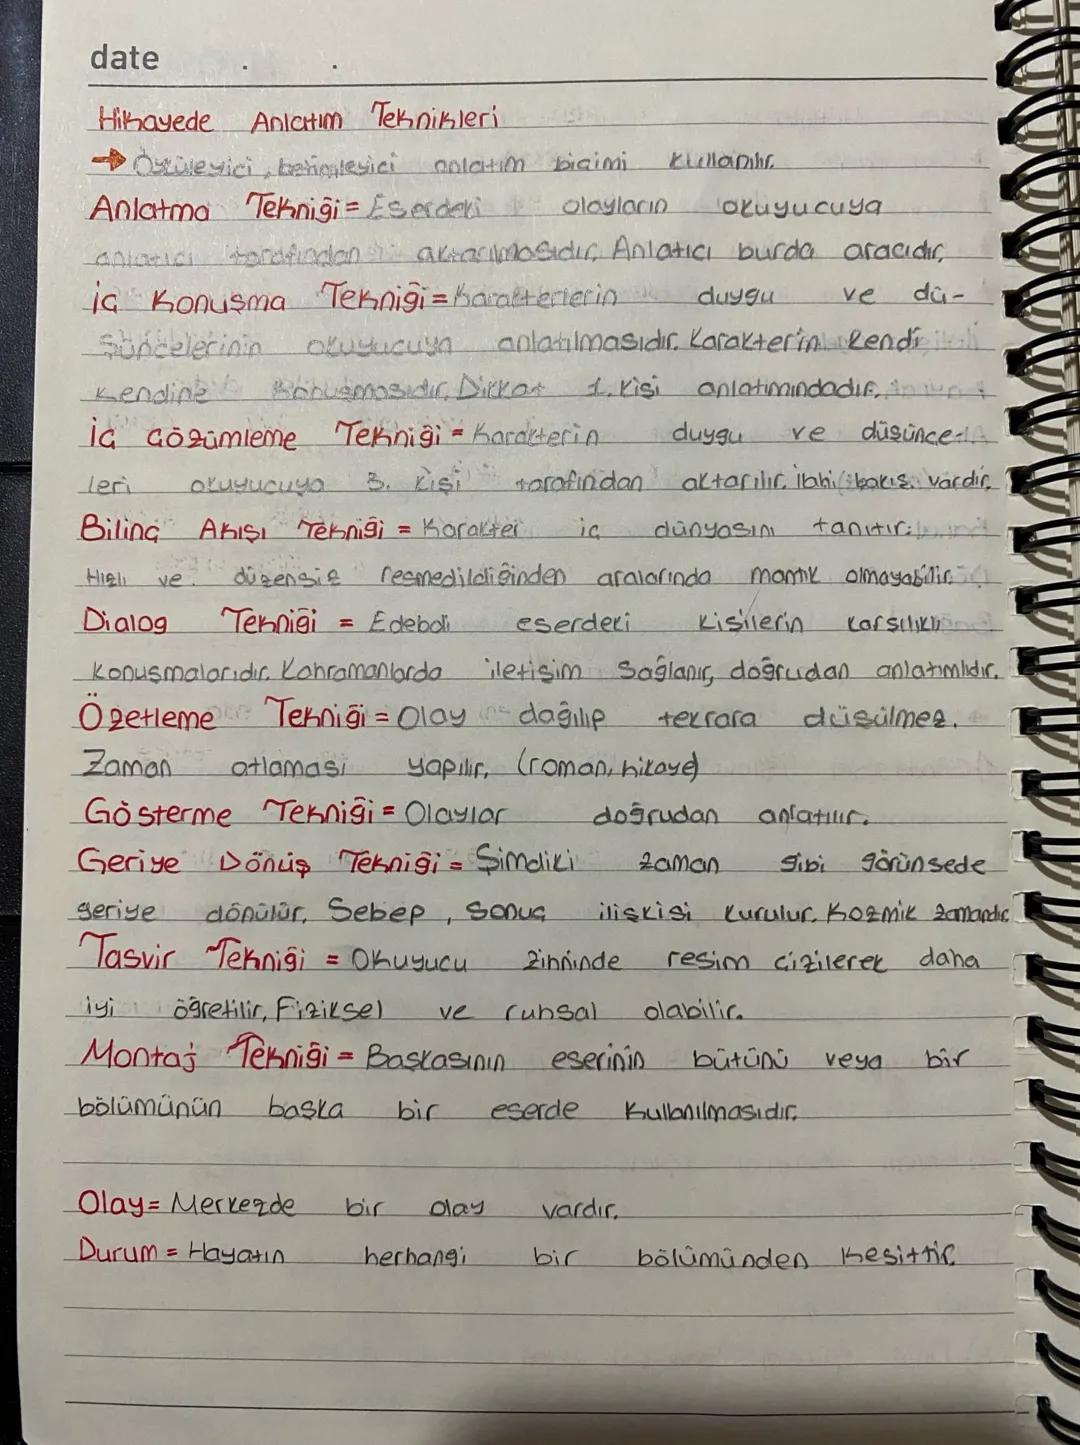 date
Hikayede Anlatım Teknikleri
→ Öyküleyici, betimleyici anlatım biçimi kullanılır.
Anlatma Tekniği = Eserdeki olayların okuyucuya
anlatıcı tarafından aktarılmasıdır, Anlatıcı burda aracıdır,
iç Konuşma Tekniği = Karakterlerin duygu ve dü-
şüncelerinin okuyucuya anlatılmasıdır. Karakterin kendi
kendine konuşmasıdır, Dikkat 1. kişi anlatımındadır.
iç çözümleme Tekniği = Karakterin duygu ve düşünce-
leri okuyucuya 3. kişi tarafından aktarılır. ilahi bakış vardır.
Bilinç Akışı Tekniği = Karakter iç dünyasını tanıtır.
Hızlı ve düzensiz resmedildiğinden aralarında mantık olmayabilir.
Dialog Tekniği = Edebdi eserdeki kişilerin karşılıklı
konuşmalarıdır. Kahramanlarda iletişim sağlanır, doğrudan anlatımlıdır.
Özetleme Tekniği = Olay dağılıp tekrara düşülmez.
Zaman atlaması yapılır, (roman, hikaye)
Gösterme Tekniği = Olaylar doğrudan anlatılır.
Geriye Dönüş Tekniği = Şimdiki zaman gibi görünsede
geriye dönülür, Sebep, sonuç ilişkisi kurulur. Kozmik zamandır
Tasvir Tekniği = Okuyucu zihninde resim çizilerek daha
iyi öğretilir, Fiziksel ve ruhsal olabilir.
Montaj Tekniği = Başkasının eserinin bütünü veya bir
bölümünün başka bir eserde kullanılmasıdır.
Olay = Merkezde bir olay vardır.
Durum = Hayatın herhangi bir bölümünden kesittir.